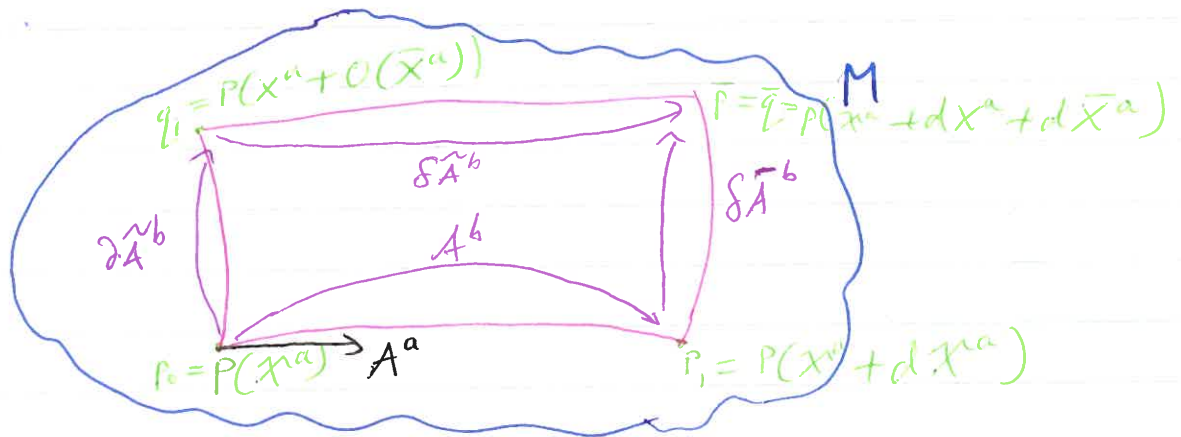 q₁ = P(xᵃ + O(x̄ᵃ))
M
p̄ = q̄ = P(xᵃ + dxᵃ + dx̄ᵃ)
δÃᵇ
δĀᵇ
∂Ãᵇ
Aᵇ
Aᵃ
p₀ = P(xᵃ)
P₁ = P(xᵃ + dxᵃ)